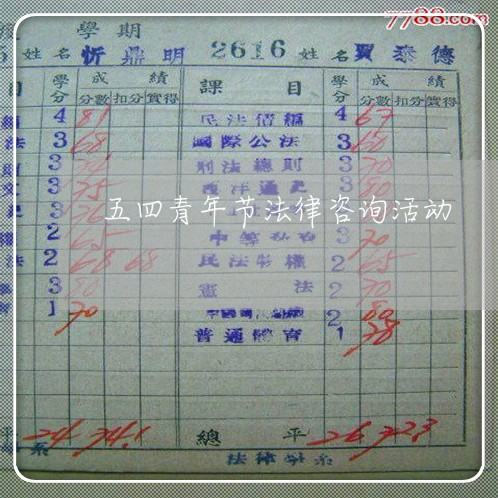 7788.com
學期
5 姓名 忻鼎明 2616 姓名 賈泰德
目 學分 成績 課目 學分 成績
分數 扣分 實得 分數 扣分 實得
4 81 民法債編 4 67
法 3 68 國際公法 3 60
3 刑法總則 3 70
3 75 西洋通史 3 80
五四青年节法律咨询活动
2 65 3 70
法 2 68 68 民法物權 2 65
3 80 憲法 2 70
1 70 2 80
普通體育 1 78
平 24 74.1 總平 26 72.3
系 法律學系